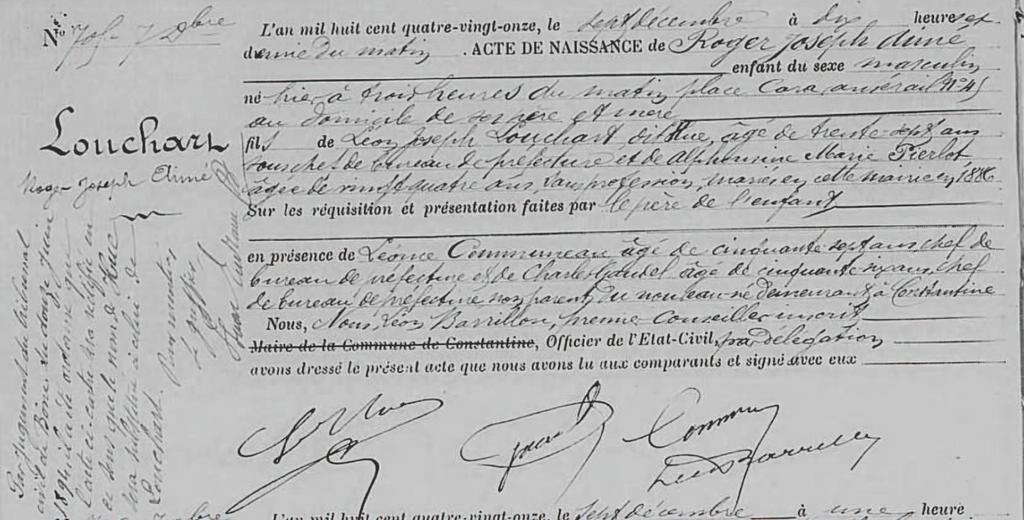 No 7 Xbre
L'an mil huit cent quatre-vingt-onze, le sept décembre à dix heures et
demie du matin. ACTE DE NAISSANCE de Roger Joseph Aimé
enfant du sexe masculin
né hier à trois heures du matin place Caravansérail No 4
au domicile de ses père et mère
fils de Léon Joseph Louchart, dit Hue, âgé de trente-sept ans
sous chef de bureau de préfecture et de Alphonsine Marie Pierlot
âgée de vingt quatre ans, sans profession, mariés en cette mairie en 188
Sur les réquisition et présentation faites par le père de l'enfant
en présence de Léonce Communeau âgé de cinquante sept ans chef de
bureau de préfecture et de Charles âgé de cinquante ans, chef
de bureau de préfecture non parents du nouveau né demeurant à Constantine
Nous, Nous, Léon Barrillon, premier Conseiller inscrit
Maire de la Commune de Constantine, Officier de l'Etat-Civil, par délégation
avons dressé le présent acte que nous avons lu aux comparants et signé avec eux
Louchart
Roger Joseph Aimé
Par jugement du tribunal
civil de Bône du douze juin
1891, il a été ordonné que
l'acte ci-contre sera rectifié en
ce sens que le nom de Hue
sera substitué à celui de
Louchart.
Pour mention
Le greffier
L'an mil huit cent quatre-vingt-onze, le sept décembre à une heure